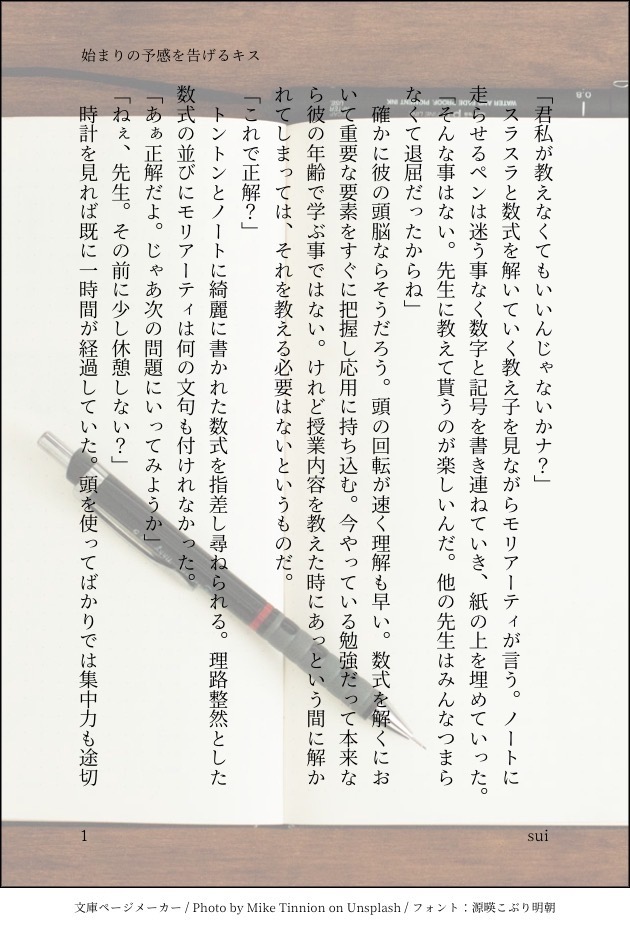 始まりの予感を告げるキス
「君私が教えなくてもいいんじゃないかナ？」
　スラスラと数式を解いていく教え子を見ながらモリアーティが言う。ノートに
走らせるペンは迷う事なく数字と記号を書き連ねていき、紙の上を埋めていった。
「そんな事はない。先生に教えて貰うのが楽しいんだ。他の先生はみんなつまら
なくて退屈だったからね」
　確かに彼の頭脳ならそうだろう。頭の回転が速く理解も早い。数式を解くにお
いて重要な要素をすぐに把握し応用に持ち込む。今やっている勉強だって本来な
ら彼の年齢で学ぶ事ではない。けれど授業内容を教えた時にあっという間に解か
れてしまっては、それを教える必要はないというものだ。
「これで正解？」
　トントンとノートに綺麗に書かれた数式を指差し尋ねられる。理路整然とした
数式の並びにモリアーティは何の文句も付けれなかった。
「あぁ正解だよ。じゃあ次の問題にいってみようか」
「ねぇ、先生。その前に少し休憩しない？」
　時計を見れば既に一時間が経過していた。頭を使ってばかりでは集中力も途切
1
sui
文庫ページメーカー / Photo by Mike Tinnion on Unsplash / フォント：源暎こぶり明朝